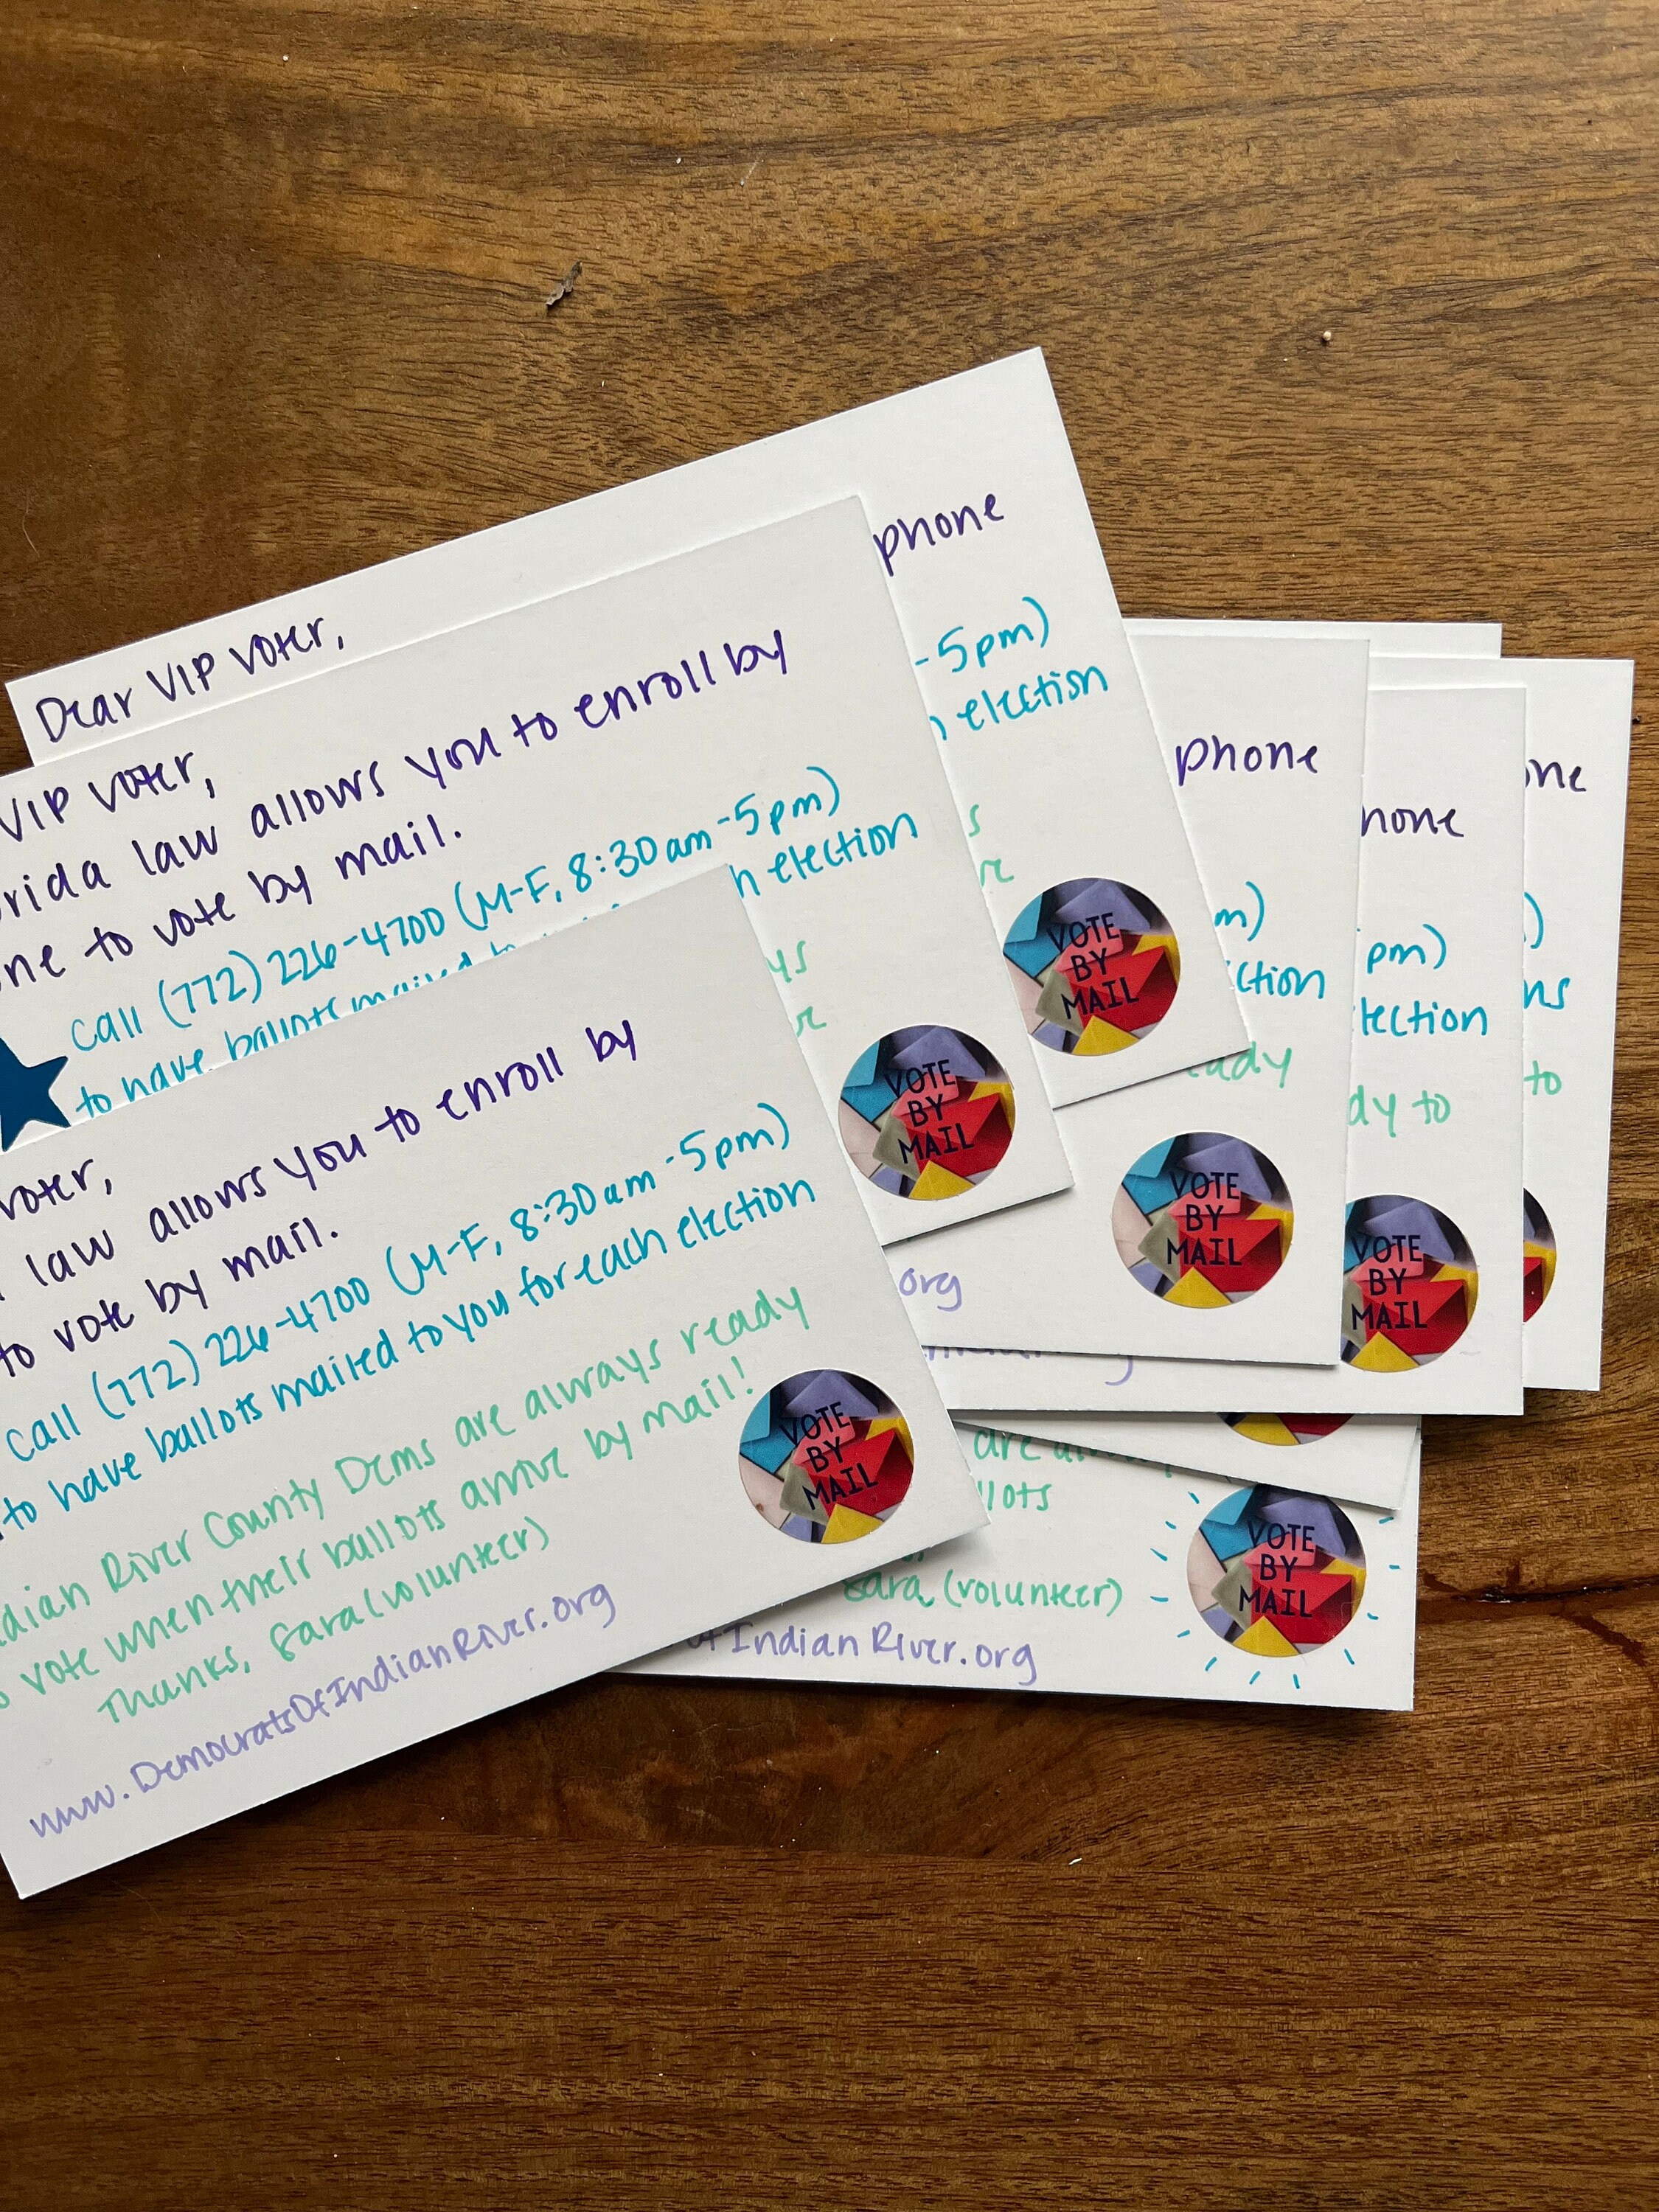 Dear VIP voter,
phone
-5pm)
election
VIP voter,
law allows you to enroll by
to vote by mail.
call (772) 226-4700 (M-F, 8:30am-5pm)
to have ballots mailed to
election
voter,
law allows you to enroll by
to vote by mail.
call (772) 226-4700 (M-F, 8:30am-5pm)
to have ballots mailed to you for each election
River County Dems are always ready
vote when their ballots arrive by mail!
Thanks, Sara (volunteer)
www.DemocratsOfIndianRiver.org
VOTE
BY
MAIL
VOTE
BY
MAIL
VOTE
BY
MAIL
phone
org
VOTE
BY
MAIL
pm)
election
to
VOTE
BY
MAIL
to
are
Sara (volunteer)
IndianRiver.org
VOTE
BY
MAIL